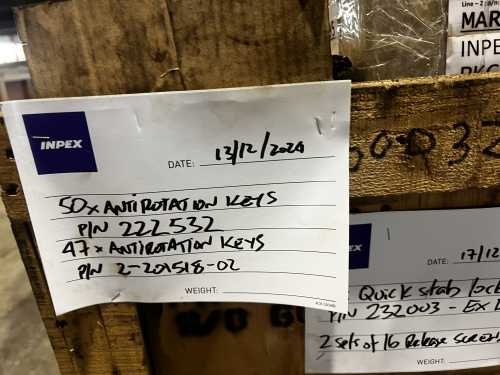 Line - 2
MAR
INPE
INPEX
DATE: 13/12/2024
50x ANTIROTATION KEYS
P/N 222532
47x ANTIROTATION KEYS
P/N 2-201518-02
WEIGHT:
EX
DATE: 17/12
Quick stab lock
P/N 232003 - Ex
2 sets of 16 Release screws
WEIGHT: